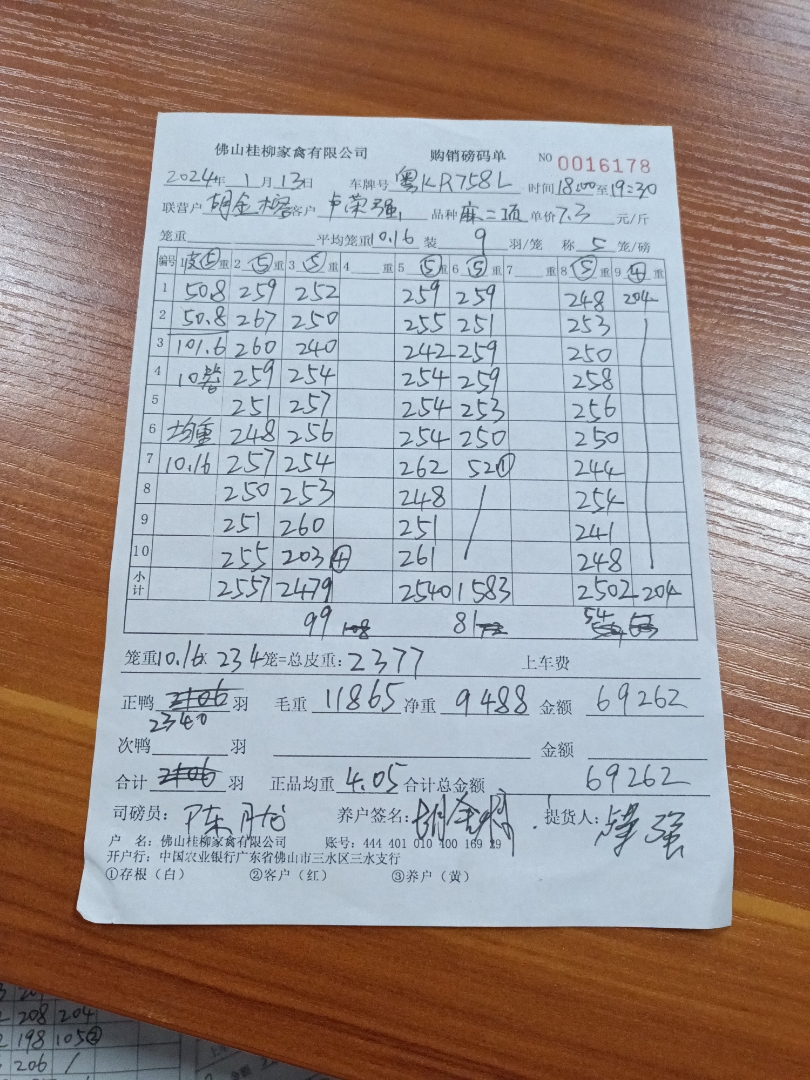 佛山桂柳家禽有限公司 购销磅码单 NO 0016178
2024年 1月13日 车牌号 粤KR758L 时间18:00至19:30
联营户 胡金榕 客户 卢荣强 品种 麻二项 单价7.3 元/斤
笼重 平均笼重10.16 装 9 羽/笼 称 5 笼/磅
编号 1皮⑤重 2 ⑤重 3 ⑤重 4 重 5 ⑤重 6 ⑤重 7 重 8 ⑤重 9 ④重
1 50.8 259 252 259 259 248 204
2 50.8 267 250 255 251 253
3 101.6 260 240 242 259 250
4 10 259 254 254 259 258
5 251 257 254 253 256
6 均重 248 256 254 250 250
7 10.16 257 254 262 52① 244
8 250 253 248 / 254
9 251 260 251 241
10 255 203④ 261 248
小计 2557 2479 2540 1583 2502 204
99 108 81 72 54
笼重10.16× 234笼=总皮重:2377 上车费
正鸭 2106 羽 毛重 11865 净重 9488 金额 69262
2340
次鸭 羽 金额
合计 2106 羽 正品均重 4.05 合计总金额 69262
司磅员: 陈 养户签名: 胡金榕 提货人: 强
户 名: 佛山桂柳家禽有限公司 账号: 444 401 010 400 169 29
开户行: 中国农业银行广东省佛山市三水区三水支行
①存根(白) ②客户(红) ③养户(黄)
208 204
198 105②
206 /